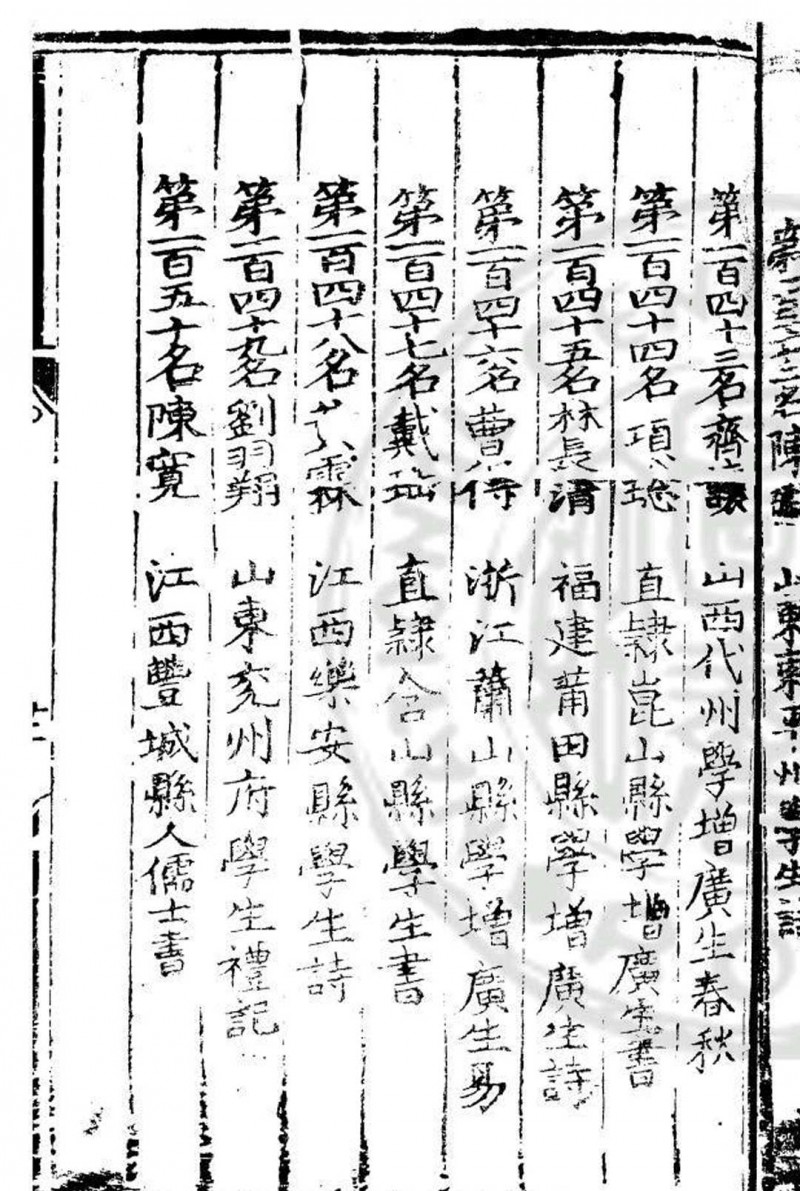 名陳 山東東平州學生詩
第一百四十三名齊 山西代州學增廣生春秋
第一百四十四名項璁 直隷崑山縣學增廣生書
第一百四十五名林長清 福建莆田縣學增廣生詩
第一百四十六名曹 浙江蕭山縣學增廣生易
第一百四十七名戴 直隷含山縣學生書
第一百四十八名 霖 江西樂安縣學生詩
第一百四十九名劉翔 山東兖州府學生禮記
第一百五十名陳寬 江西豐城縣人儒士書